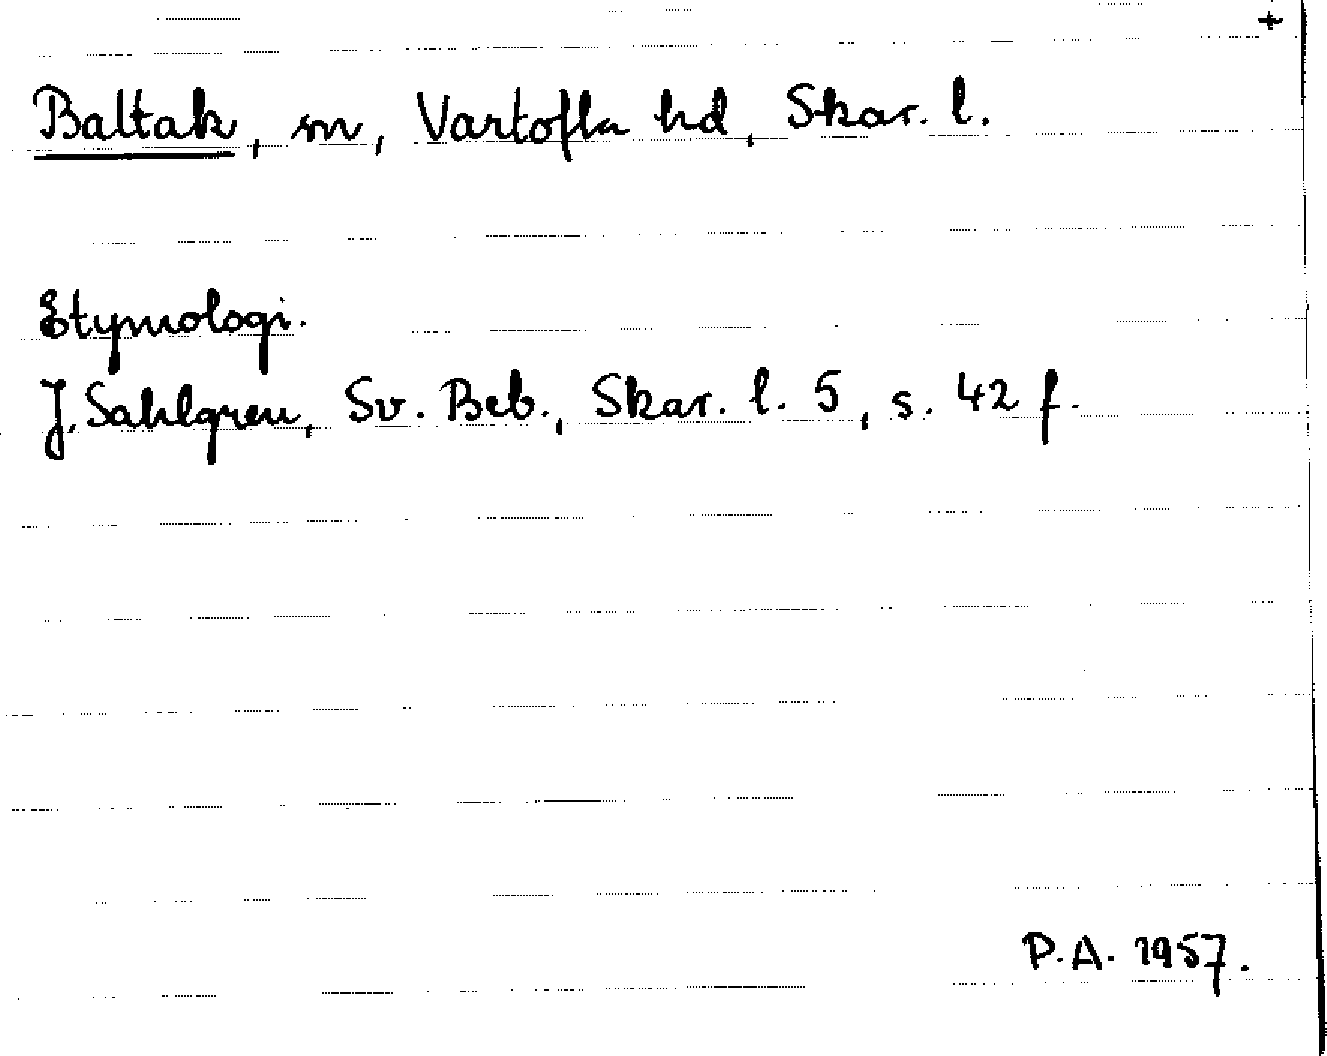 +
Baltak, sn, Vartofta hd, Skar. l.
Etymologi.
J. Sahlgren, Sv. Beb., Skar. l. 5, s. 42 f.
P.A. 1957.